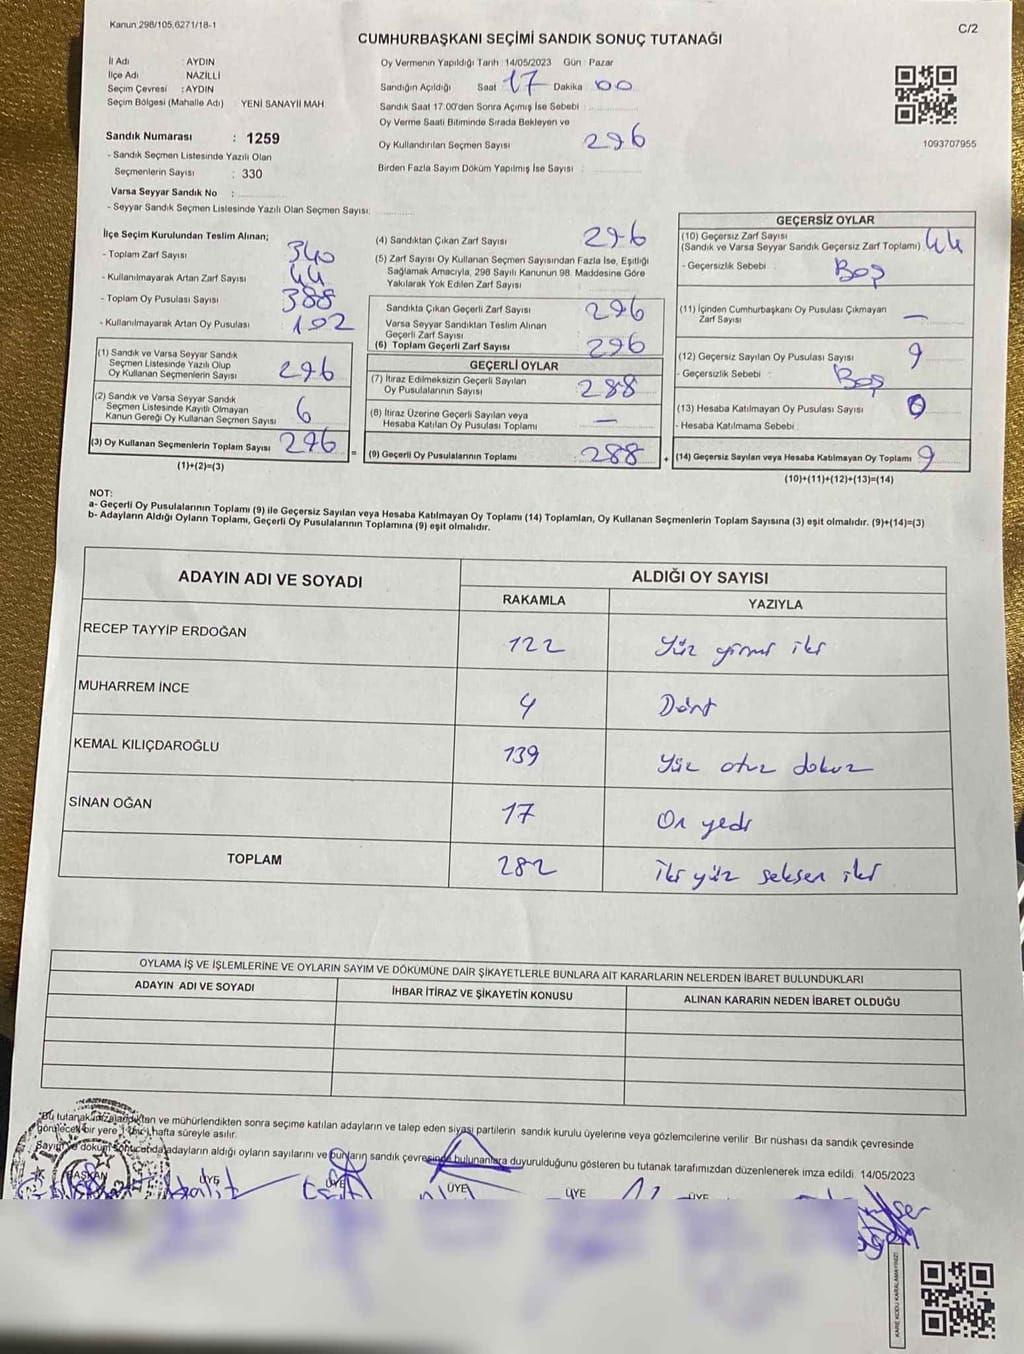 Kanun 298/105,6271/18-1
C/2
CUMHURBAŞKANI SEÇİMİ SANDIK SONUÇ TUTANAĞI
İl Adı : AYDIN
İlçe Adı : NAZİLLİ
Seçim Çevresi : AYDIN
Seçim Bölgesi (Mahalle Adı) : YENİ SANAYİİ MAH
Sandık Numarası : 1259
- Sandık Seçmen Listesinde Yazılı Olan
Seçmenlerin Sayısı : 330
Varsa Seyyar Sandık No :
- Seyyar Sandık Seçmen Listesinde Yazılı Olan Seçmen Sayısı:
Oy Vermenin Yapıldığı Tarih :14/05/2023 Gün : Pazar
Sandığın Açıldığı Saat 17 Dakika 00
Sandık Saat 17:00'den Sonra Açımış İse Sebebi :
Oy Verme Saati Bitiminde Sırada Bekleyen ve
Oy Kullandırılan Seçmen Sayısı : 296
Birden Fazla Sayım Döküm Yapılmış İse Sayısı :
1093707955
İlçe Seçim Kurulundan Teslim Alınan;
- Toplam Zarf Sayısı : 340
- Kullanılmayarak Artan Zarf Sayısı : 44
- Toplam Oy Pusulası Sayısı : 388
- Kullanılmayarak Artan Oy Pusulası : 102
(1) Sandık ve Varsa Seyyar Sandık
Seçmen Listesinde Yazılı Olup
Oy Kullanan Seçmenlerin Sayısı : 296
(2) Sandık ve Varsa Seyyar Sandık
Seçmen Listesinde Kayıtlı Olmayan
Kanun Gereği Oy Kullanan Seçmen Sayısı : 6
(3) Oy Kullanan Seçmenlerin Toplam Sayısı : 296
(1)+(2)=(3)
(4) Sandıktan Çıkan Zarf Sayısı : 296
(5) Zarf Sayısı Oy Kullanan Seçmen Sayısından Fazla İse, Eşitliği
Sağlamak Amacıyla, 298 Sayılı Kanunun 98. Maddesine Göre
Yakılarak Yok Edilen Zarf Sayısı
Sandıkta Çıkan Geçerli Zarf Sayısı : 296
Varsa Seyyar Sandıktan Teslim Alınan
Geçerli Zarf Sayısı
(6) Toplam Geçerli Zarf Sayısı : 296
GEÇERLİ OYLAR
(7) İtiraz Edilmeksizin Geçerli Sayılan
Oy Pusulalarının Sayısı : 288
(8) İtiraz Üzerine Geçerli Sayılan veya
Hesaba Katılan Oy Pusulası Toplamı : —
(9) Geçerli Oy Pusulalarının Toplamı : 288
=
+
GEÇERSİZ OYLAR
(10) Geçersiz Zarf Sayısı
(Sandık ve Varsa Seyyar Sandık Geçersiz Zarf Toplamı) : 44
- Geçersizlik Sebebi : Boş
(11) İçinden Cumhurbaşkanı Oy Pusulası Çıkmayan
Zarf Sayısı —
(12) Geçersiz Sayılan Oy Pusulası Sayısı : 9
- Geçersizlik Sebebi : Boş
(13) Hesaba Katılmayan Oy Pusulası Sayısı : 0
- Hesaba Katılmama Sebebi :
(14) Geçersiz Sayılan veya Hesaba Katılmayan Oy Toplamı : 9
(10)+(11)+(12)+(13)=(14)
NOT:
a- Geçerli Oy Pusulalarının Toplamı (9) ile Geçersiz Sayılan veya Hesaba Katılmayan Oy Toplamı (14) Toplamları, Oy Kullanan Seçmenlerin Toplam Sayısına (3) eşit olmalıdır. (9)+(14)=(3)
b- Adayların Aldığı Oyların Toplamı, Geçerli Oy Pusulalarının Toplamına (9) eşit olmalıdır.
ADAYIN ADI VE SOYADI ALDIĞI OY SAYISI
RAKAMLA YAZIYLA
RECEP TAYYİP ERDOĞAN 122 Yüz yirmi iki
MUHARREM İNCE 4 Dört
KEMAL KILIÇDAROĞLU 139 Yüz otuz dokuz
SİNAN OĞAN 17 On yedi
TOPLAM 282 iki yüz seksen iki
OYLAMA İŞ VE İŞLEMLERİNE VE OYLARIN SAYIM VE DÖKÜMÜNE DAİR ŞİKAYETLERLE BUNLARA AİT KARARLARIN NELERDEN İBARET BULUNDUKLARI
ADAYIN ADI VE SOYADI İHBAR İTİRAZ VE ŞİKAYETİN KONUSU ALINAN KARARIN NEDEN İBARET OLDUĞU
"Bu tutanak imzalandıktan ve mühürlendikten sonra seçime katılan adayların ve talep eden siyasi partilerin sandık kurulu üyelerine veya gözlemcilerine verilir. Bir nüshası da sandık çevresinde
görülecek bir yere 1 (bir) hafta süreyle asılır.
Sayım ve döküm sonucunda adayların aldığı oyların sayılarını ve bunların sandık çevresinde bulunanlara duyurulduğunu gösteren bu tutanak tarafımızdan düzenlenerek imza edildi. 14/05/2023
BAŞKAN ÜYE ÜYE ÜYE ÜYE ÜYE
KARE KODU KARALAMAYINIZ!